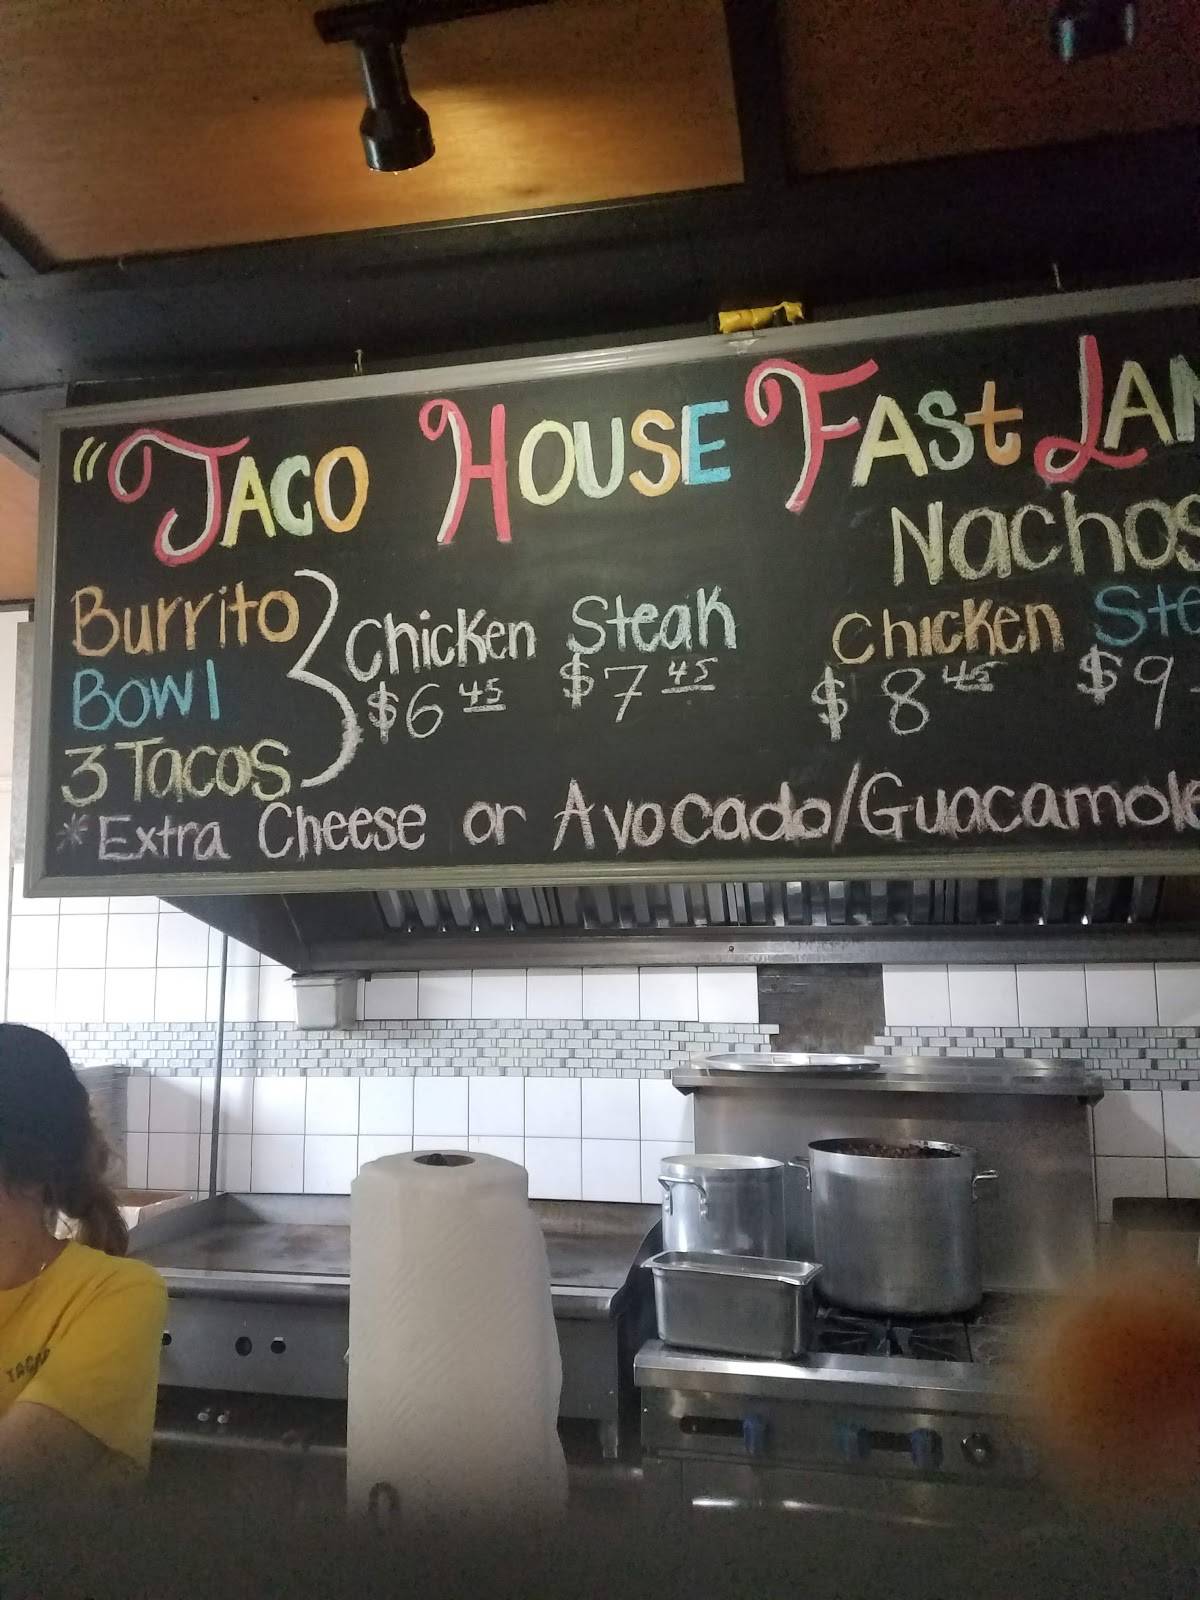 "TACO HOUSE FAST LAN
Nachos
Burrito
Bowl
3 Tacos
Chicken Steak
$6 45 $7 45
Chicken Ste
$8 45 $9
*Extra Cheese or Avocado/Guacamole